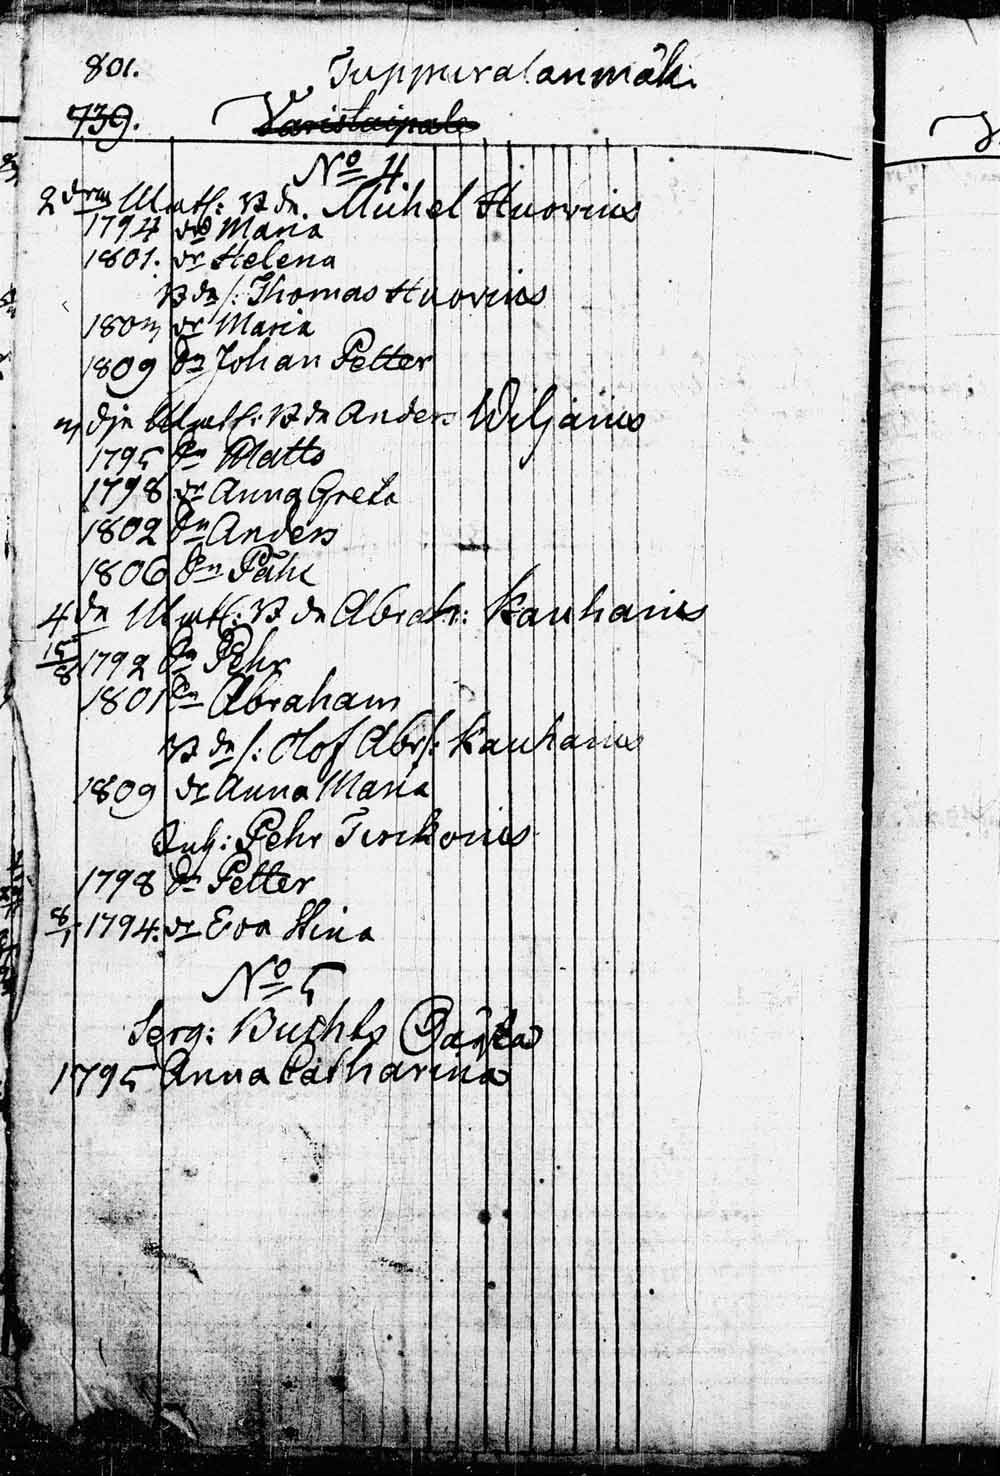 801. Tuppuralanmäki
739. Varistaipale
No 4
2dra Mantl: Bdn. Michel Huovius
1794 dr Maria
1801. dr Helena
Bdn s: Thomas Huovius
1807 dr Maria
1809 Sn Johan Petter
3dje Mantl: Bdn Anders Wiljanius
1795 Sn Matts
1798 dr Anna Greta
1802 Sn Anders
1806 Sn Påhl
4de Mantl: Bdn Abrah: Kauhanius
15/8 1792 Sn Pehr
1801 Sn Abraham
Bdn s: Olof Abrs: Kauhanius
1809 dr Anna Maria
Inh: Pehr Turkonius
1798 Sn Petter
8/1 1794. dr Eva Stina
No 5
Serg: Buchts
1795 Anna Catharina